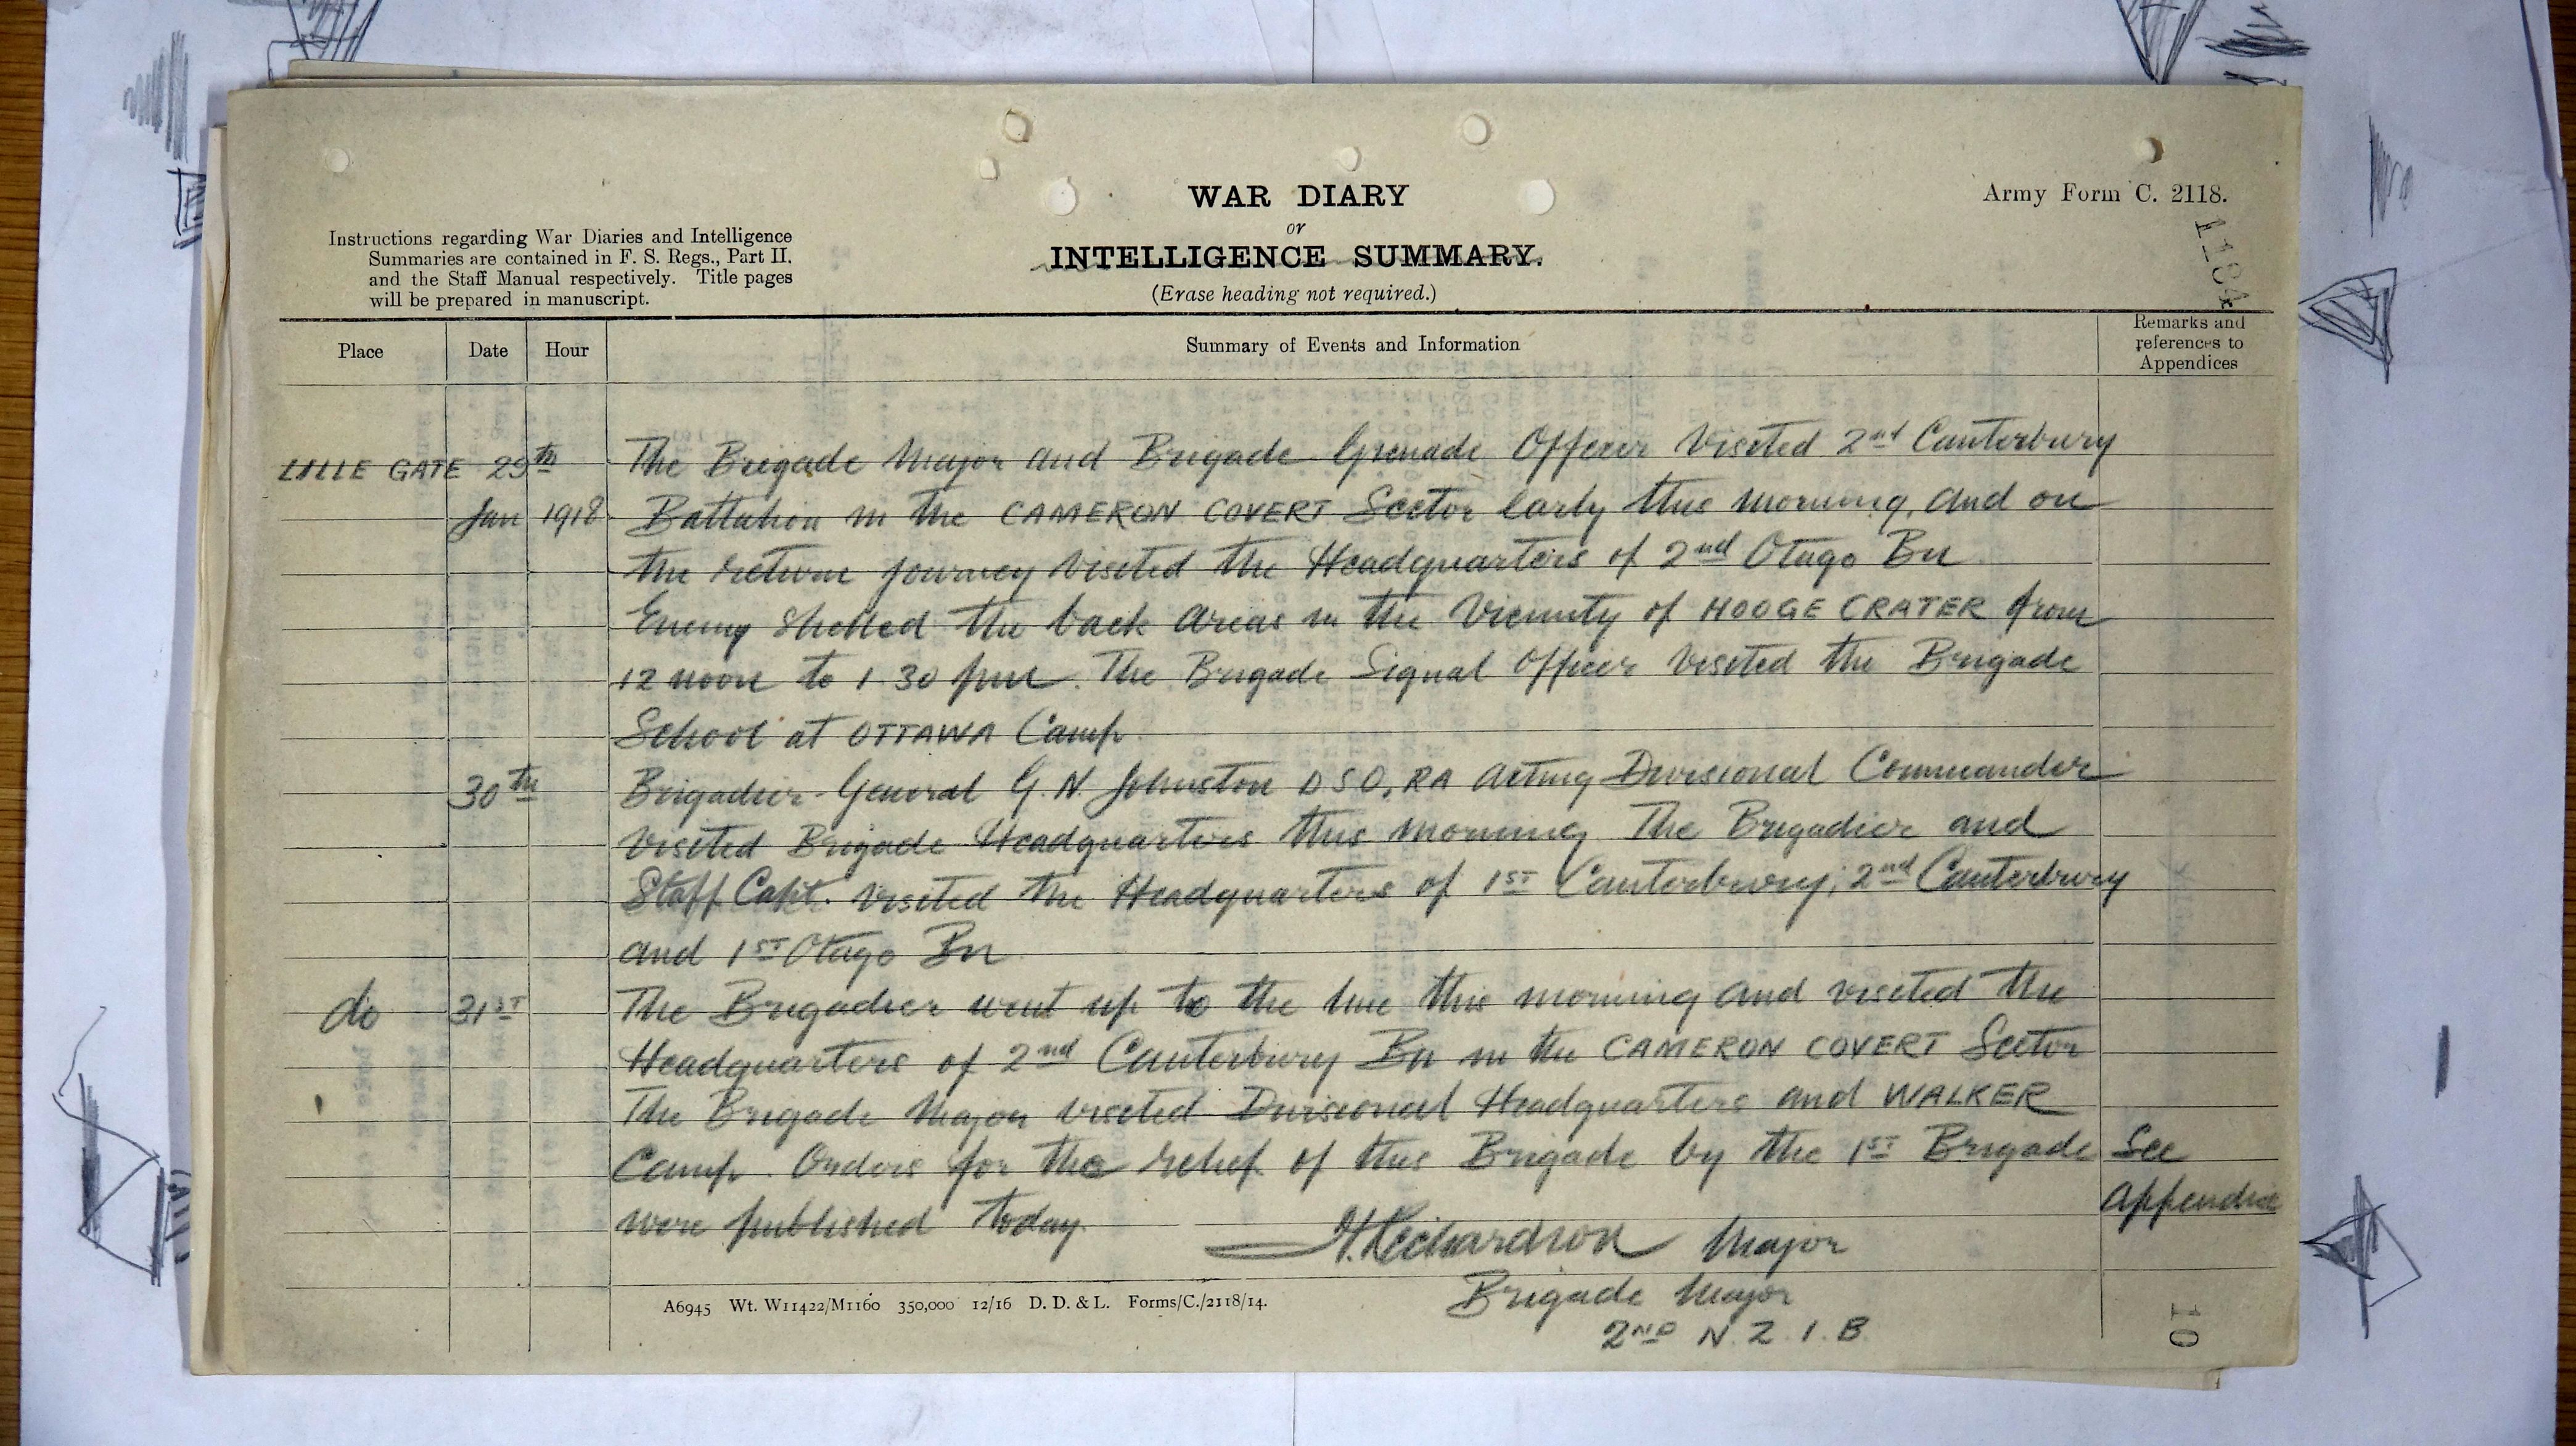 WAR DIARY
or
INTELLIGENCE SUMMARY.
(Erase heading not required.)
Army Form C. 2118.
1184
Instructions regarding War Diaries and Intelligence
Summaries are contained in F. S. Regs., Part II.
and the Staff Manual respectively. Title pages
will be prepared in manuscript.
Place Date Hour Summary of Events and Information Remarks and
references to
Appendices
LILLE GATE 29th The Brigade Major and Brigade Grenade Officer visited 2nd Canterbury
Jan 1918 Battalion in the CAMERON COVERT Sector early this morning, and on
the return journey visited the Headquarters of 2nd Otago Bn
Enemy shelled the back areas in the vicinity of HOOGE CRATER from
12 noon to 1.30 pm. The Brigade Signal Officer visited the Brigade
School at OTTAWA Camp
30th Brigadier-General G. N. Johnston DSO, RA Acting Divisional Commander
visited Brigade Headquarters this morning. The Brigadier and
Staff Capt. visited the Headquarters of 1st Canterbury, 2nd Canterbury
and 1st Otago Bn
do 31st The Brigadier went up to the line this morning and visited the
Headquarters of 2nd Canterbury Bn in the CAMERON COVERT Sector
The Brigade Major visited Divisional Headquarters and WALKER
Camp. Orders for the relief of this Brigade by the 1st Brigade See
were published today. Appendix
H. Richardson Major
Brigade Major
2ND N. Z. I. B.
A6945 Wt. W11422/M1160 350,000 12/16 D. D. & L. Forms/C./2118/14.
10